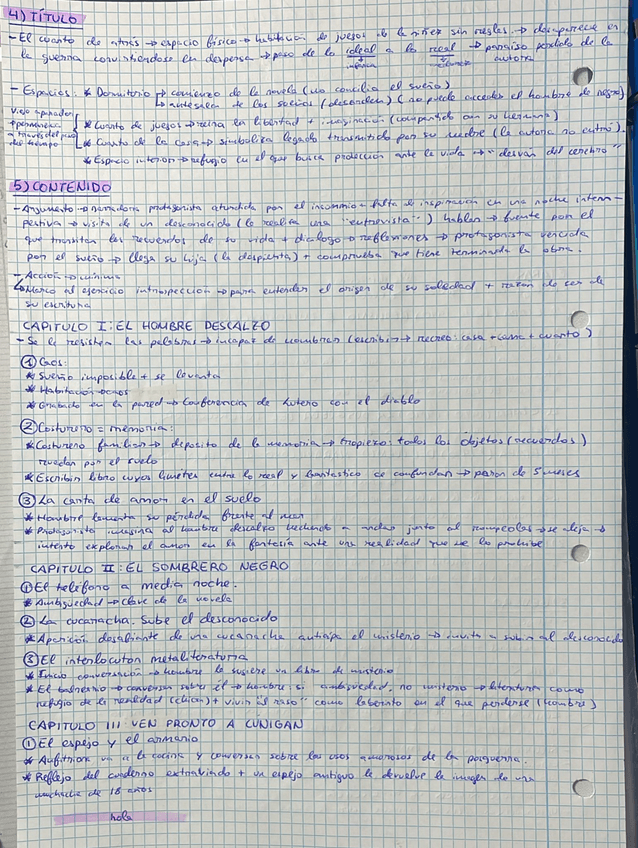 4) TÍTULO
- El cuarto de atrás → espacio físico → habitación de juegos de la niñez sin reglas → desaparece en
la guerra convirtiéndose en despensa → paso de lo ideal a lo real → paraíso perdido de la
infancia autora
- Espacios: * Dormitorio → comienzo de la novela (no concilia el sueño)
→ antesala de los sueños (desorden) (no puede acceder el hombre de negro)
Viejo aparador
+ permanece
a través del paso
del tiempo
* Cuarto de juegos → reina la libertad + imaginación (compartido con su hermana)
* Cuarto de la casa → simboliza legado transmitido por su madre (la autora no entra).
* Espacio interior → refugio en el que busca protección ante la vida → "desván del cerebro"
5) CONTENIDO
- Argumento → narradora protagonista aturdida por el insomnio + falta de inspiración en una noche intem-
pestiva → visita de un desconocido (le realiza una "entrevista") hablan → fuente por el
que transitan los recuerdos de su vida + diálogo → reflexiones → protagonista vencida
por el sueño → llega su hija (la despierta) + comprueba que tiene terminada la obra.
- Acción → mínima
Marco al ejercicio introspección → para entender el origen de su soledad + razón de ser de
su escritura
CAPITULO I: EL HOMBRE DESCALZO
- Se le resisten las palabras → incapaz de nombrar (escribir → recreo: casa + cama + cuarto)
① Caos:
* Sueño imposible + se levanta
* Habitación → caos
* Grabado en la pared → Conferencia de Lutero con el diablo
② Costurero = memoria:
* Costurero familiar → deposito de la memoria → tropiezo: todos los objetos (recuerdos)
ruedan por el suelo
* Escribir libro cuyos límites entre lo real y fantástico se confundan → pasan de 5 meses
③ La carta de amor en el suelo
* Hombre lamenta su pérdida frente al mar
* Protagonista imagina al hombre descalzo echando a andar junto al rompeolas → se aleja →
intento explorar el amor en la fantasía ante una realidad que se lo prohíbe
CAPITULO II: EL SOMBRERO NEGRO
① El teléfono a media noche.
* Ambigüedad → clave de la novela
② La cucaracha. Sube el desconocido
* Aparición desafiante de una cucaracha anticipa el misterio → invita a subir al desconocido
③ El interlocutor metaliteratura
* Inicio conversación → hombre le sugiere un libro de misterio
* El balneario → conversan sobre él → hombre: si ambigüedad, no misterio → literatura como
refugio de la realidad (chica) + vivir "al raso" como laberinto en el que perderse (hombre)
CAPITULO III: VEN PRONTO A CÚNIGAN
① El espejo y el armario
* Anfitriona va a la cocina y conversan sobre los usos amorosos de la posguerra.
* Reflejo del cuaderno extraviado + un espejo antiguo le devuelve la imagen de una
muchacha de 18 años
hola